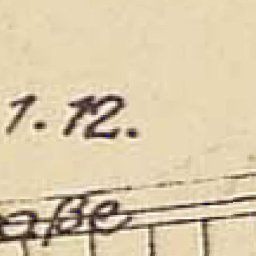 1.12.
aße